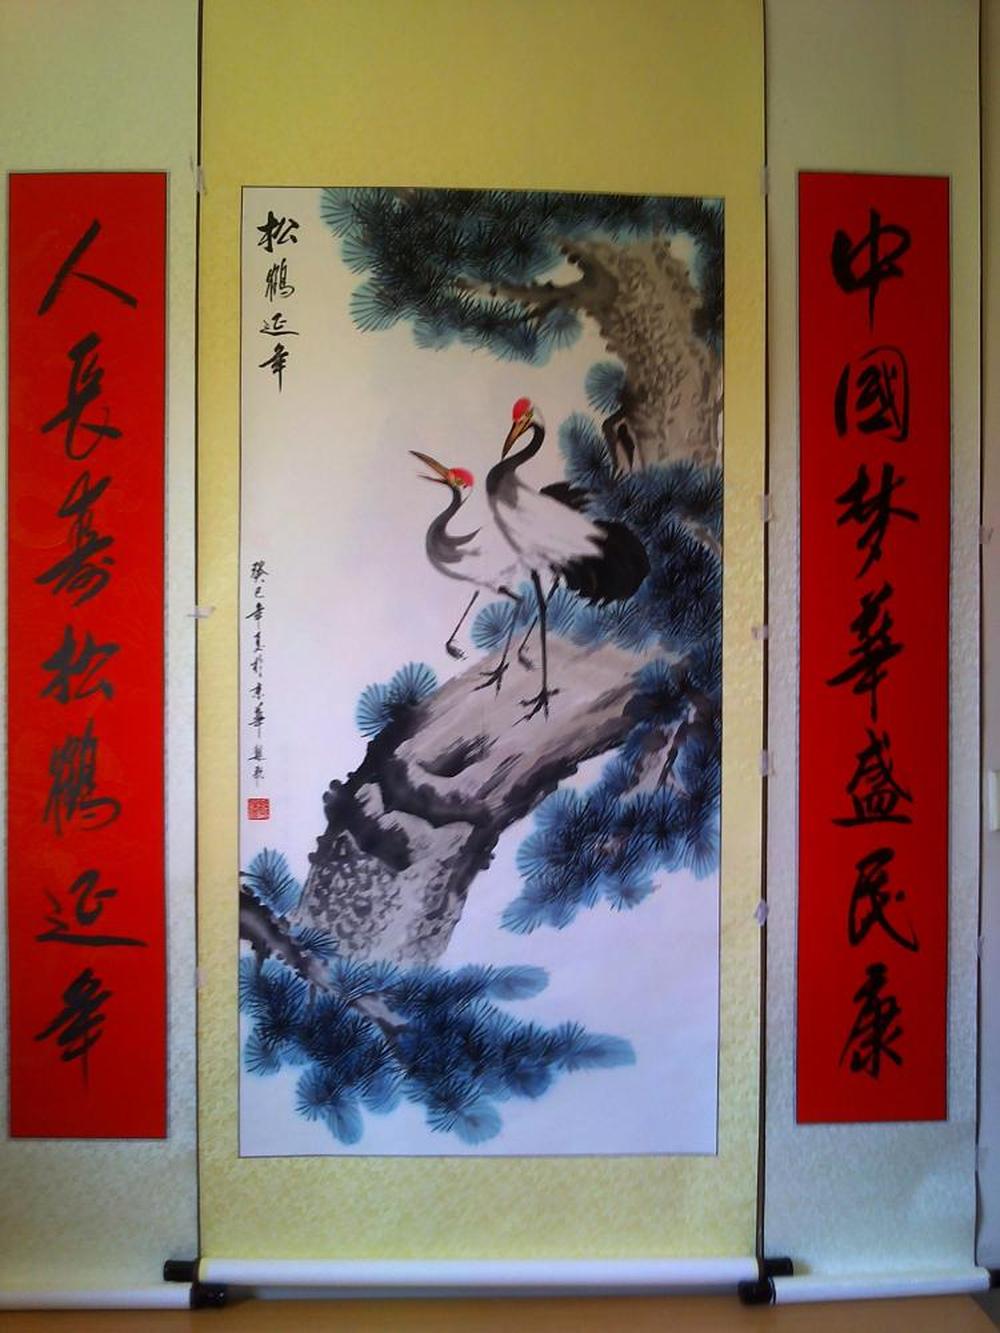 中國梦華盛民康
松鶴延年
癸巳年夏於京華
人長壽松鶴延年